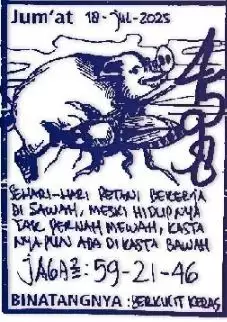 Jum'at 18-Jul-2025
4598
SEHARI-HARI PETANI BEKERJA
DI SAWAH, MESKI HIDUPNYA
TAK PERNAH MEWAH, KASTA
NYA PUN ADA DI KASTA BAWAH
JAGA²: 59-21-46
BINATANGNYA : BERKUKIT KERAS